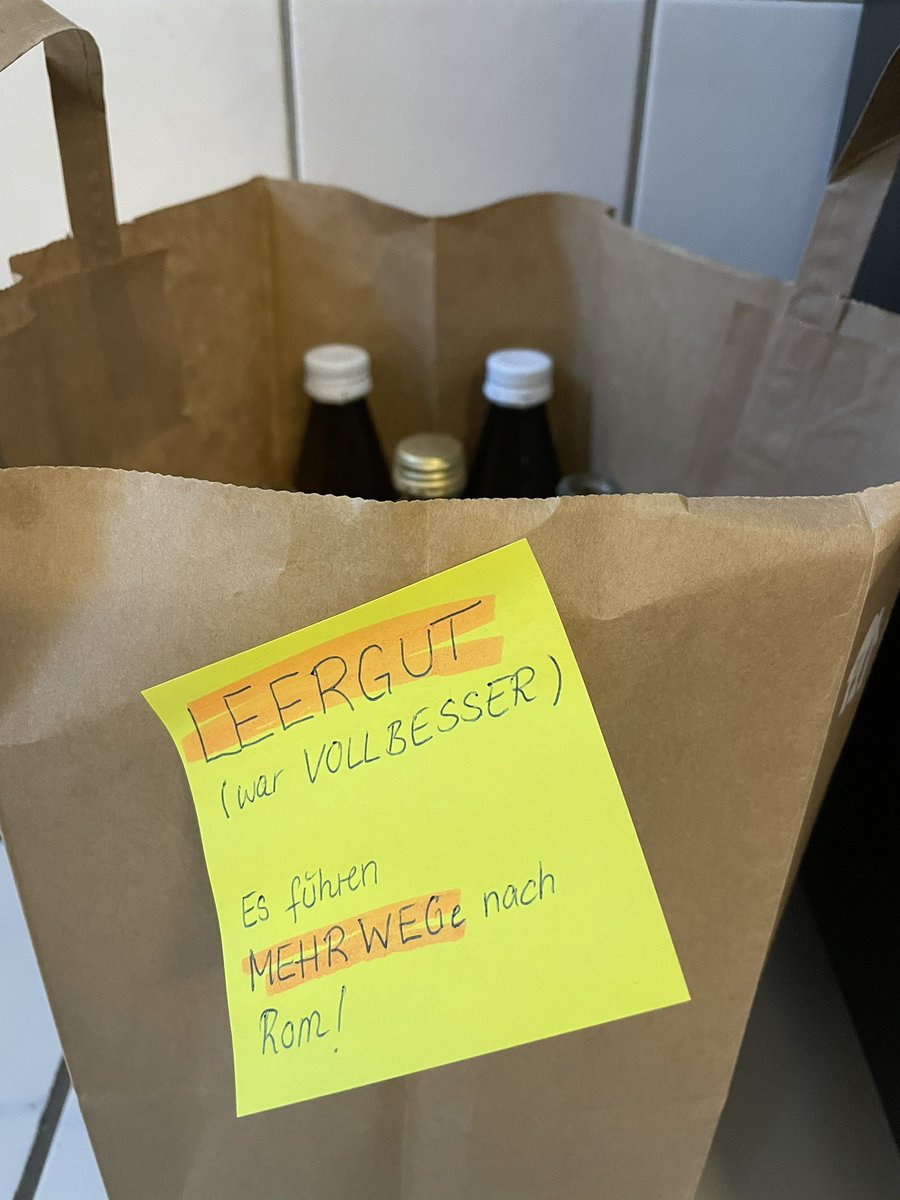 LEERGUT
(war VOLLBESSER)
Es führen
MEHRWEGe nach
Rom!